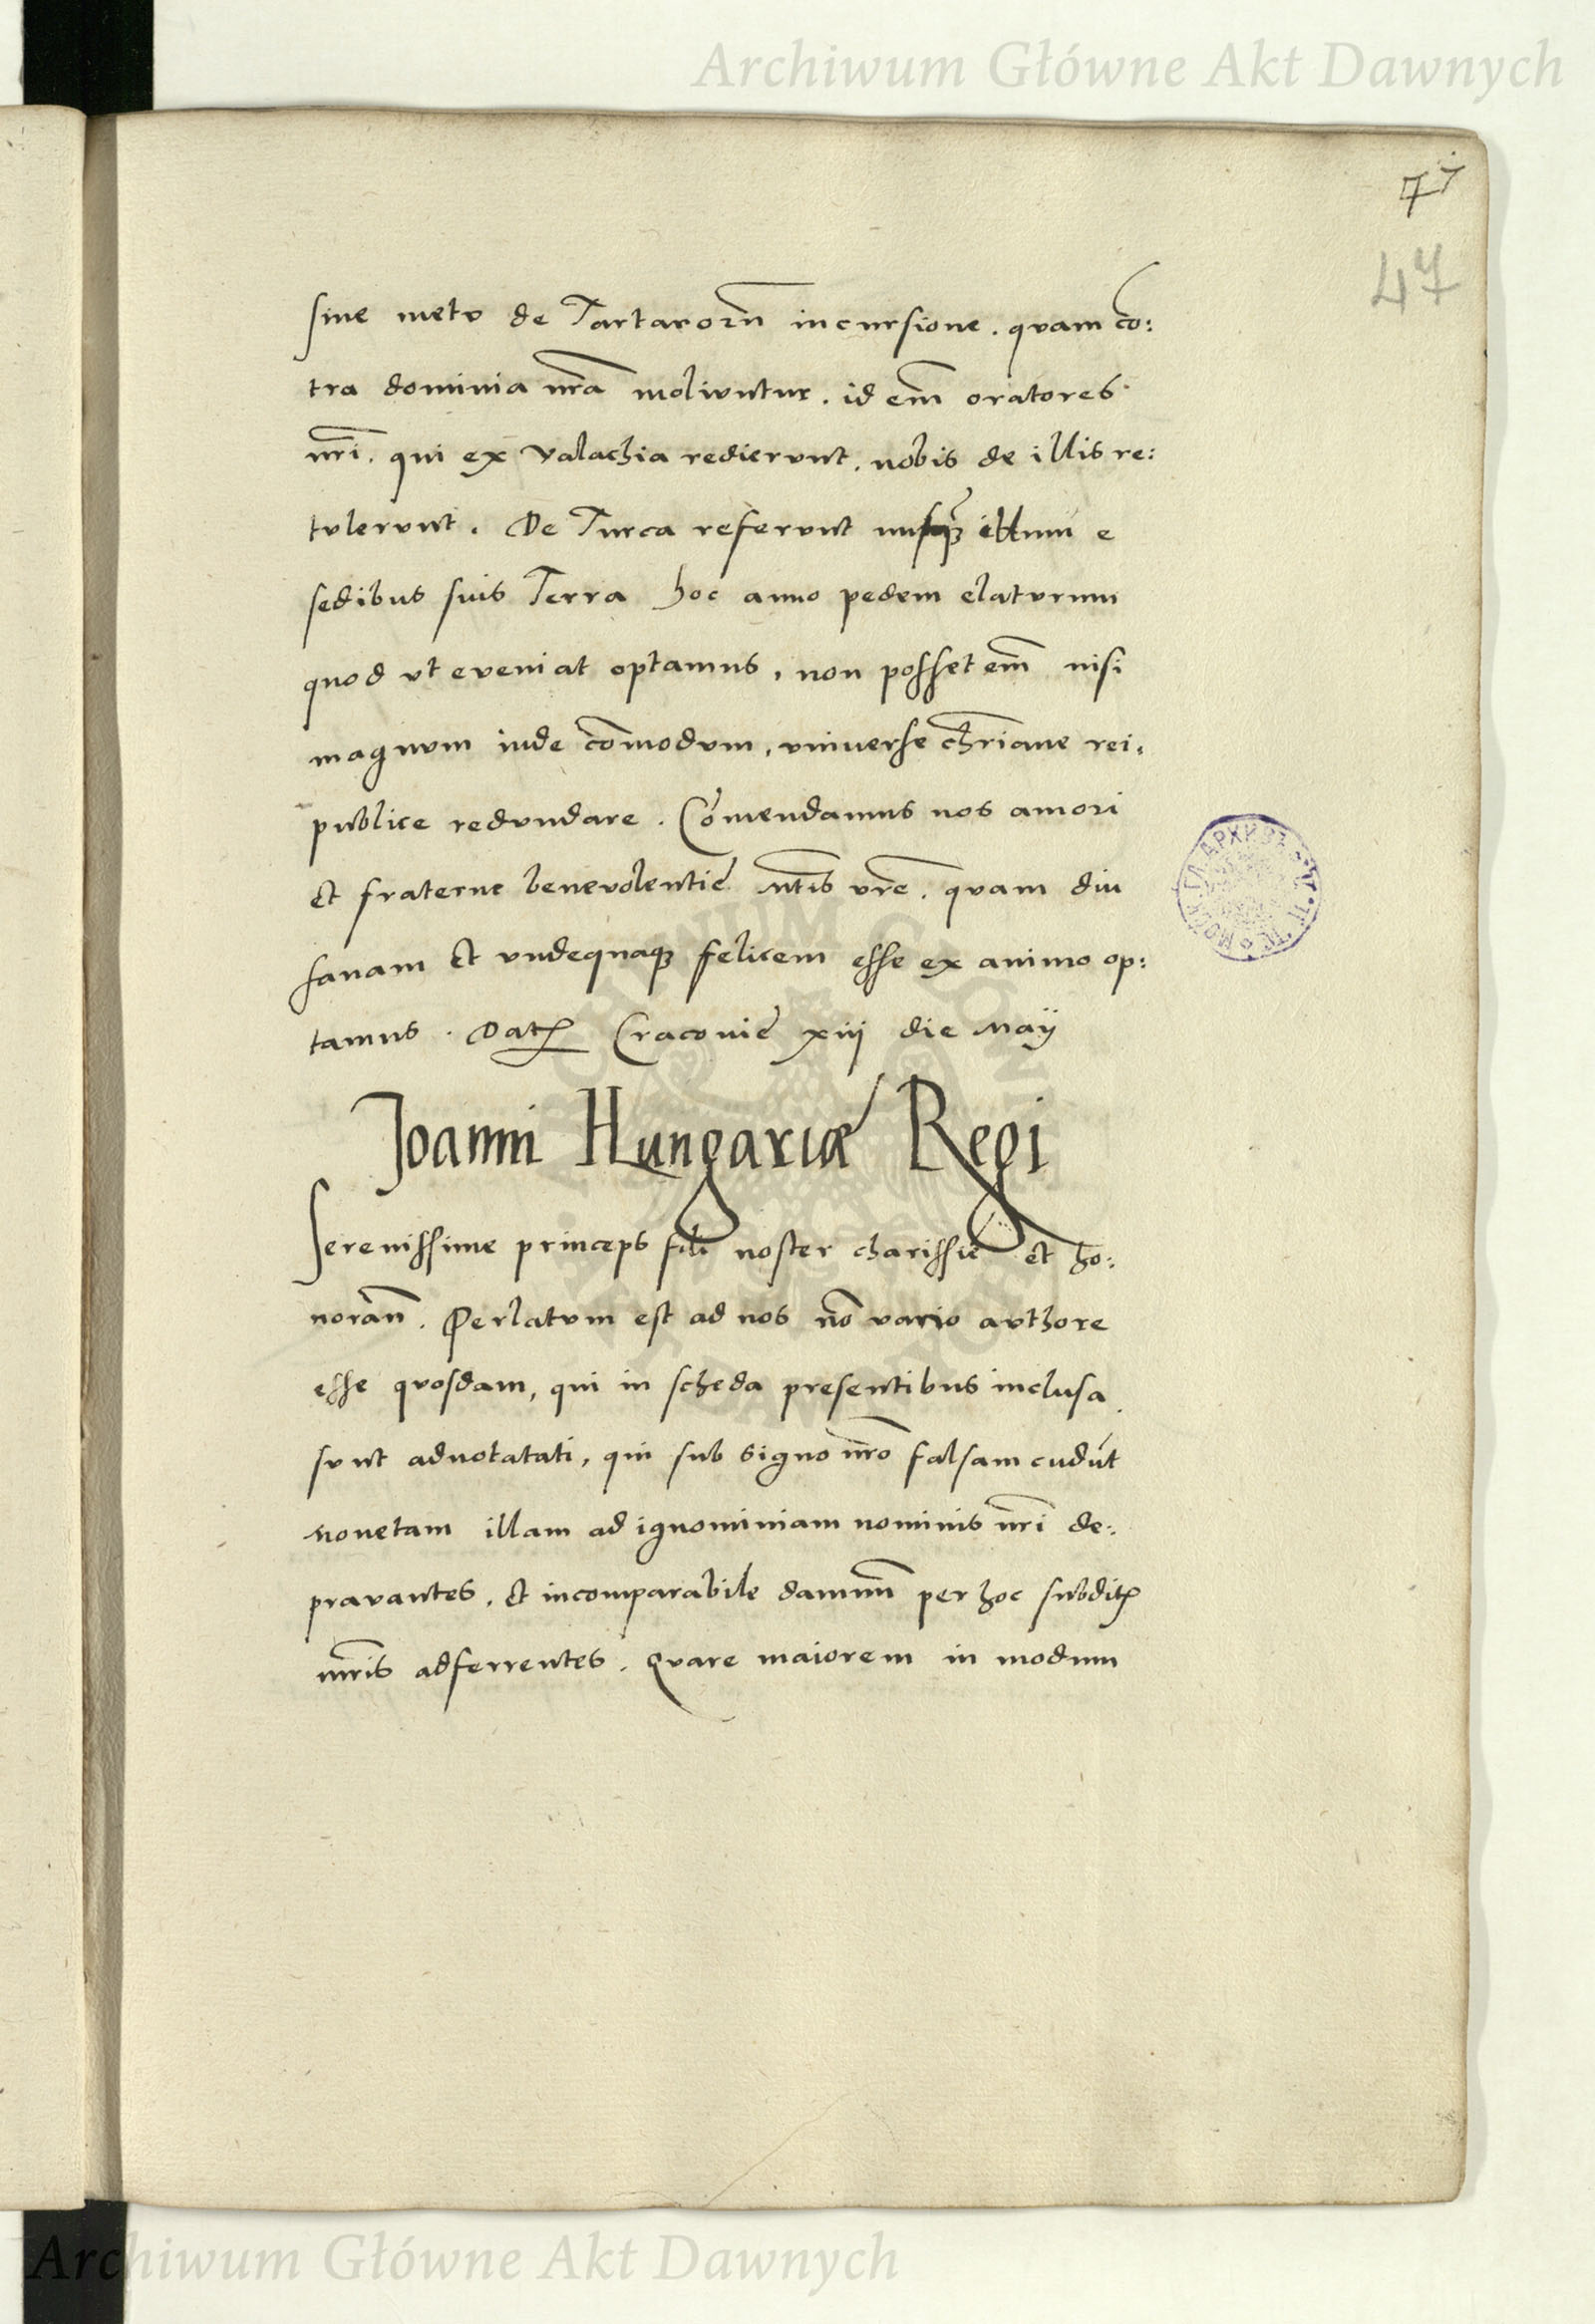 Archiwum Główne Akt Dawnych
77
47
sine metu de Tartarorũ incursione. quam cõ:
tra dominia nr̃a moliuntur. id em̃ oratores
nr̃i. qui ex Valachia redierunt. nobis de illis re:
tulerunt. De Turca referunt illum e
sedibus suis Terra hoc anno pedem elaturum
quod ut eveniat optamus, non posset em̃ nisi
magnum inde cõmodum, universe chr̃iane rei:
publice redundare. Cõmendamus nos amori
et fraterne benevolentie vr̃e. quam diu
sanam et undequaq3 felicem esse ex animo op:
tamus. Dat Cracovie xiij die Maÿ
Joanni Hungariæ Regi
Serenissime princeps fili noster charissiẽ et ho:
norañ. Perlatum est ad nos nõ vario authore
esse quosdam, qui in scheda presentibus inclusa
sunt adnotatati, qui sub signo nr̃o falsam cudũt
monetam illam ad ignominiam nominis nr̃i de:
pravantes, et incomparabile damnũ per hoc subdit
nr̃is adferrentes. Quare maiorem in modum
Archiwum Główne Akt Dawnych